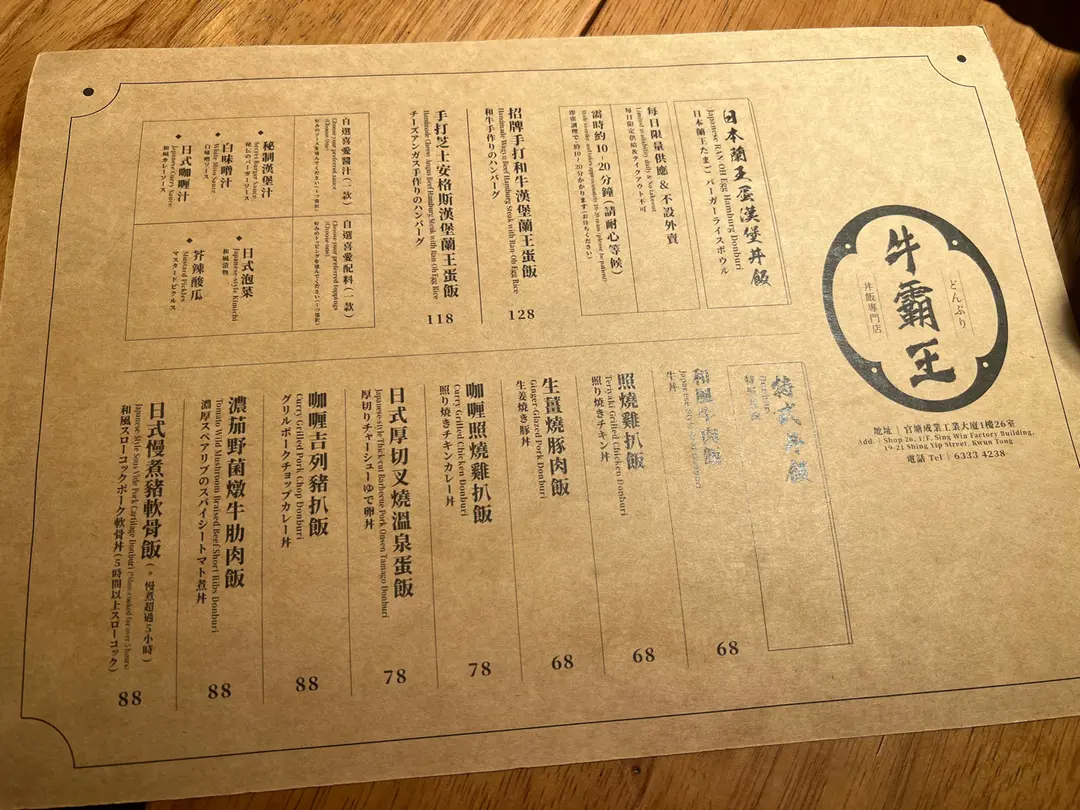 牛霸王
どんぶり
丼飯專門店
地址｜官塘成業工業大廈1樓26室
Add.｜Shop 26, 1/F, Sing Win Factory Building,
19-21 Shing Yip Street, Kwun Tong
電話 Tel｜6333 4238
日本蘭王蛋漢堡丼飯
Japanese RAN OH Egg Hamburg Donburi
日本蘭王たまご バーガーライスボウル
每日限量供應 & 不設外賣
Limited availability daily & No takeout
毎日限定供給＆テイクアウト不可
需時約10 - 20分鐘 (請耐心等候)
招牌手打和牛漢堡蘭王蛋飯
Handmade Wagyu Beef Hamburg Steak with Ran Oh Egg Rice
和牛手作りのハンバーグ
128
手打芝士安格斯漢堡蘭王蛋飯
Handmade Cheesy Angus Beef Hamburg Steak with Ran Oh Egg Rice
チーズアンガス手作りのハンバーグ
118
自選喜愛醬汁 (一款)
Choose your preferred sauce
(Choose one)
秘制漢堡汁
Secret Burger Sauce
秘伝のバーガーソース
白味噌汁
White Miso Sauce
白味噌ソース
日式咖喱汁
Japanese Curry Sauce
和風カレーソース
自選喜愛配料 (一款)
Choose your preferred toppings
(Choose one)
日式泡菜
Japanese-style Kimchi
和風漬物
芥辣酸瓜
Mustard Pickles
マスタードピクルス
特式丼飯
和風牛肉飯
牛丼
68
照燒雞扒飯
Teriyaki Grilled Chicken Donburi
照り焼きチキン丼
68
生薑燒豚肉飯
Ginger-Glazed Pork Donburi
生姜焼き豚丼
68
咖喱照燒雞扒飯
Curry Grilled Chicken Donburi
照り焼きチキンカレー丼
78
日式厚切叉燒溫泉蛋飯
Japanese-style Thick-cut Barbecue Pork Onsen Tamago Donburi
厚切りチャーシューゆで卵丼
78
咖喱吉列豬扒飯
Curry Grilled Pork Chop Donburi
グリルポークチョップカレー丼
88
濃茄野菌燉牛肋肉飯
Tomato Wild Mushroom Braised Beef Short Ribs Donburi
濃厚スペアリブのスパイシートマト煮丼
88
日式慢煮豬軟骨飯 (*慢煮超過5小時)
Japanese Style Sous Vide Pork Cartilage Donburi (*Slow-cooked for over 5 hours)
和風スローコックポーク軟骨丼 (5時間以上スローコック)
88